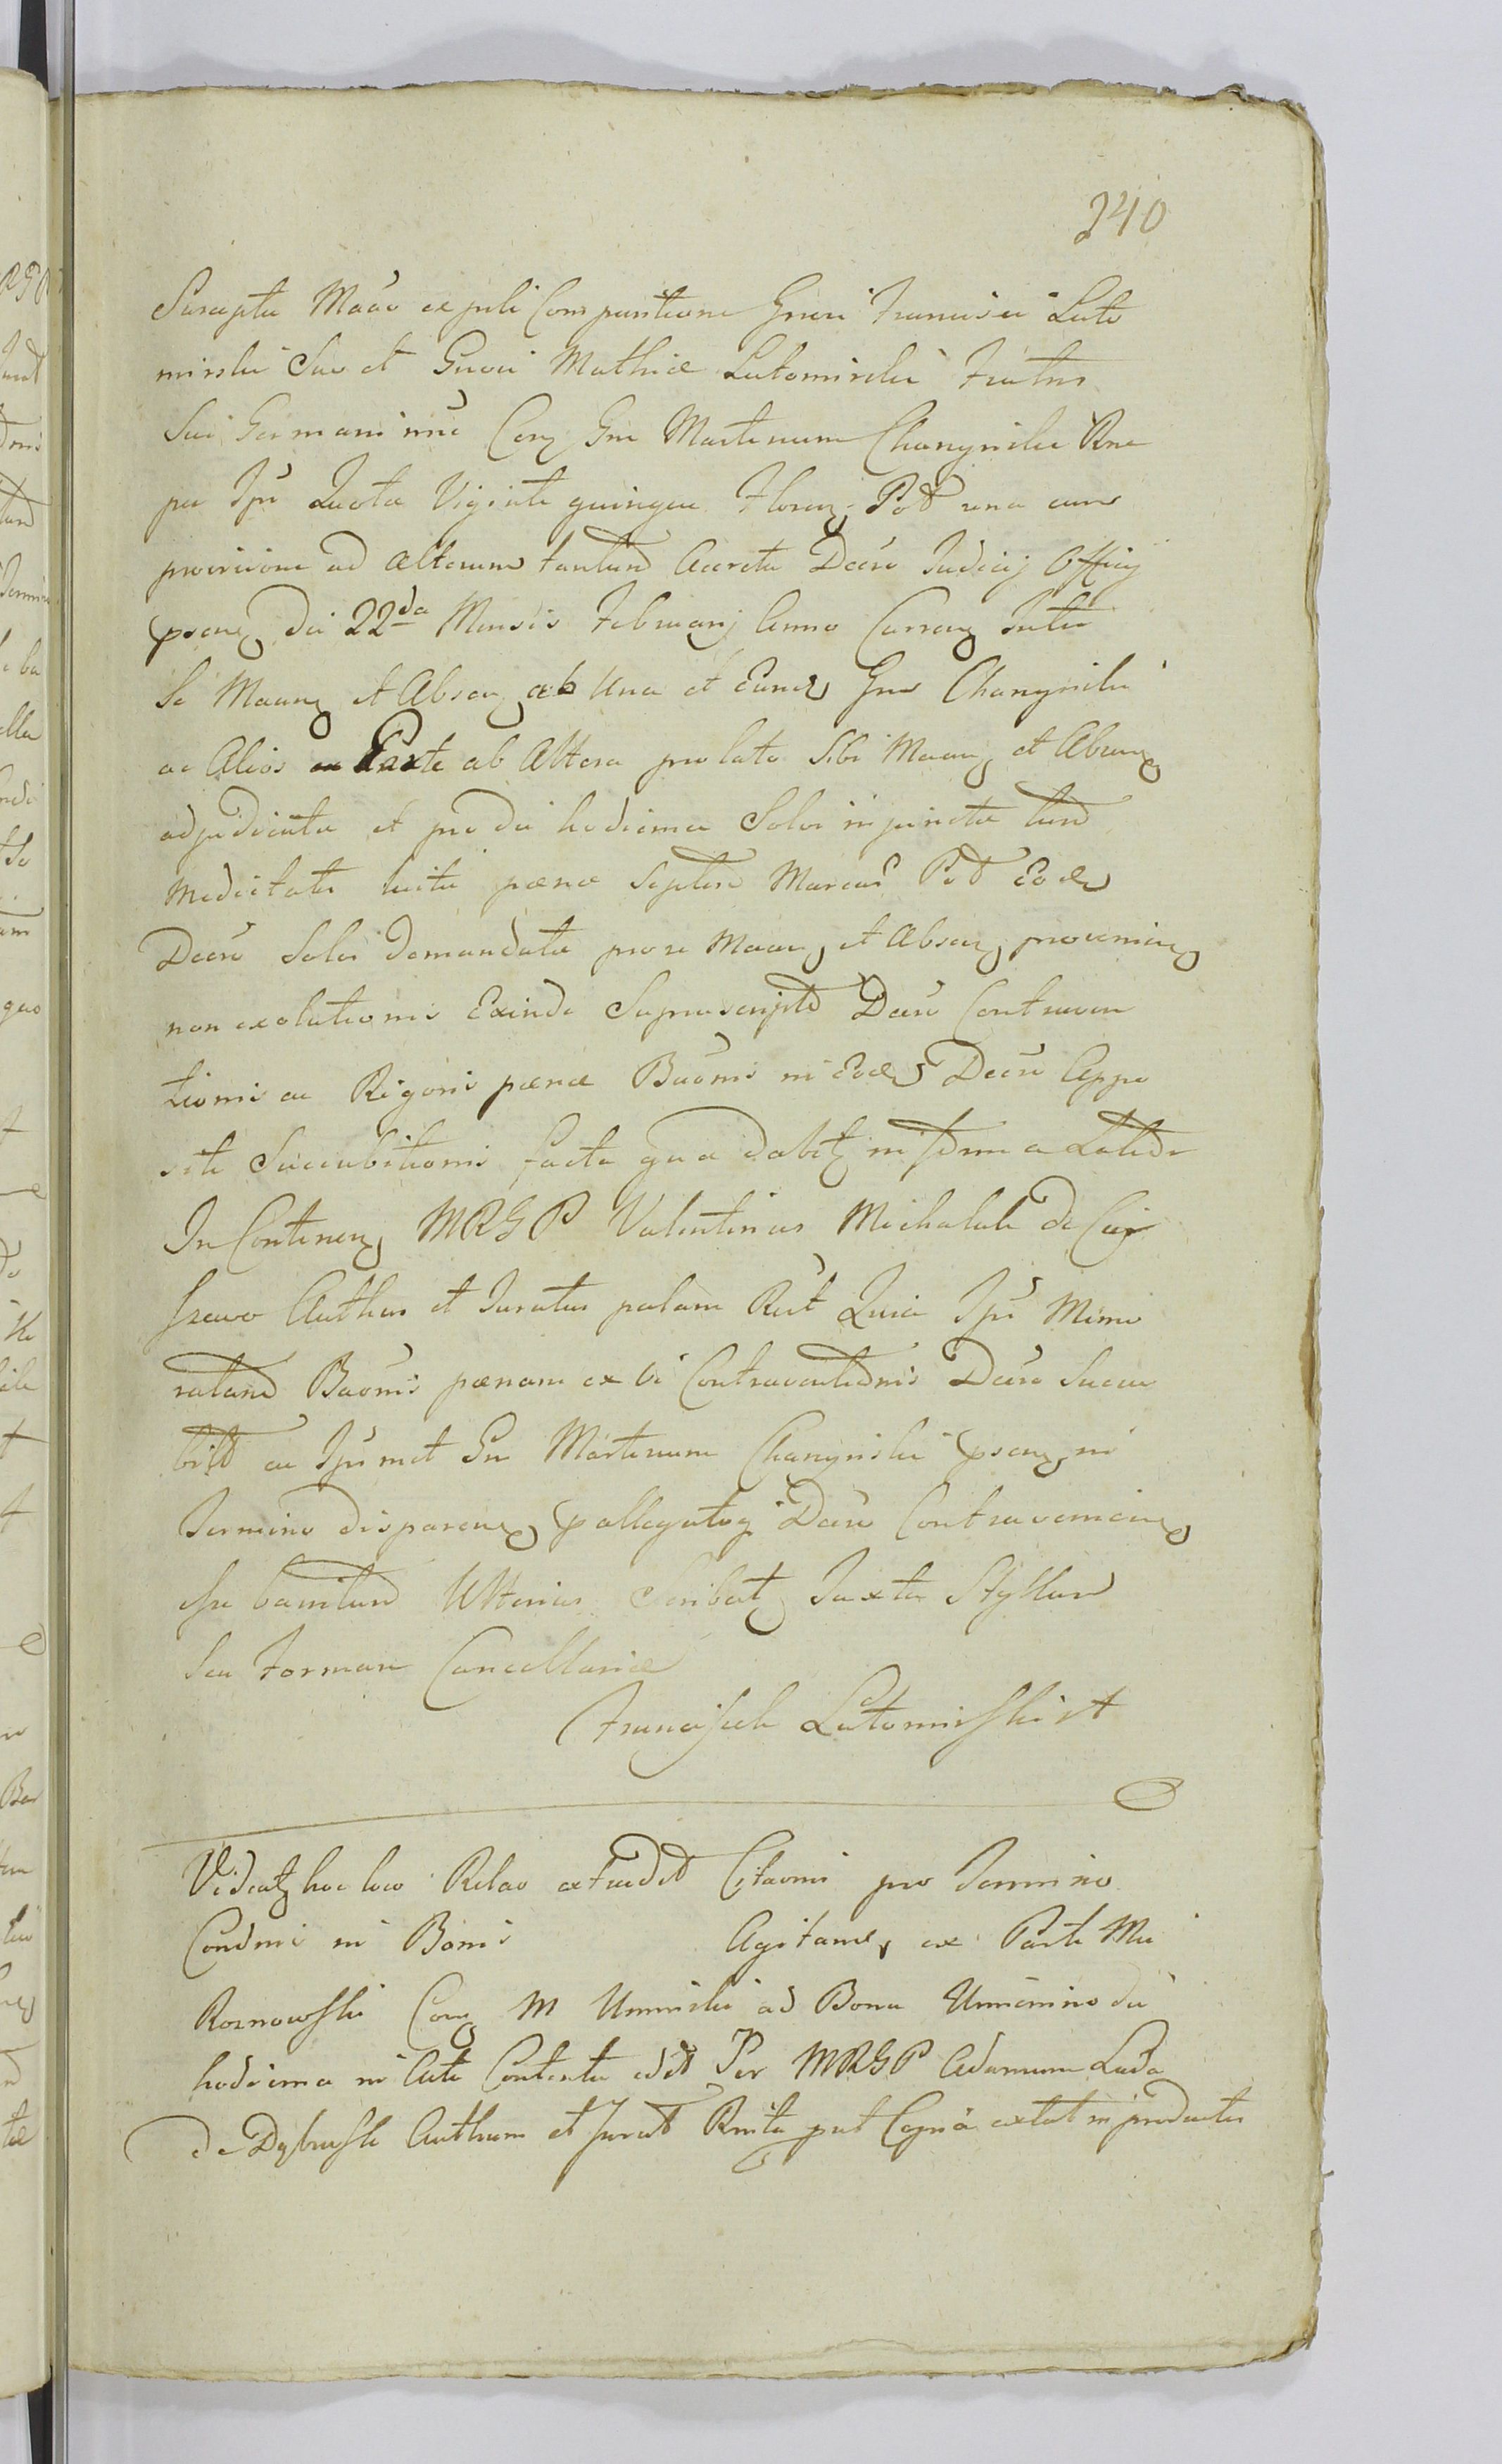 240
Suscepta Mãõ ex pσli Comparitione Gnõri Francisci Luto
mirski Suo et Gnõri Mathiæ Lutomirski Fratris
Sui Germani nnẽ Corz Gnõ Martinum Changinski Rne
per Ipσ̃ Quota Viginti quinque Floren Pol una cum
provisione ad alterum tantum Accreta Decrõ Judicij Officij
psenz Die 22da Mensis Februarij Anno Currenz Inter
Se Manenz et Absenz ab Una et Eundz Gnõ Changinski
ac Alios Parte ab Altera prolato Sibi Manenz et Absenz
adjudicata et pro die hodierna Solvi injuncta tum
Medietatis luiti pœnæ Septem Marcarũ Pol Eodz
Decrõ Solvi demandatæ pro se Manenz et Absenz provenienz
non exolutionis Exinde Suprascripti Decrõ Contraven
tionis ac Rigoris pœnæ Bãõnis in Eodz Decrõ Appo
siti Succubitionis facta qua dabitz in fdum a Latere
In Continenz MRGP Valentinus Michalak de
Auth̃us et Juratus palam Rect Quia Ipσ̃
Bãõnis pœnam ex vi Contraventionis Decrõ Succu
buit ac Ipsumet Gnõ Martinum Changinski psenz in
Termino disparenz pallegatoz Decrõ Contravenienz
esse banitum Ulterius Scribatz Juxta Styllum
Seu Formam Cancellariæ
Franciszek Lutomirski st
Videatz hoc loco Relao Citaõnis pro Termino
Condnis in Bonis Agitandz ex Parte Mci
Roznowski Corz M Uminski ad Bona die
hodierna in Acti Contenta edit Per MRGP Adamum Luda
de Auth̃um et Jurat Rnita put Copia extat in producta